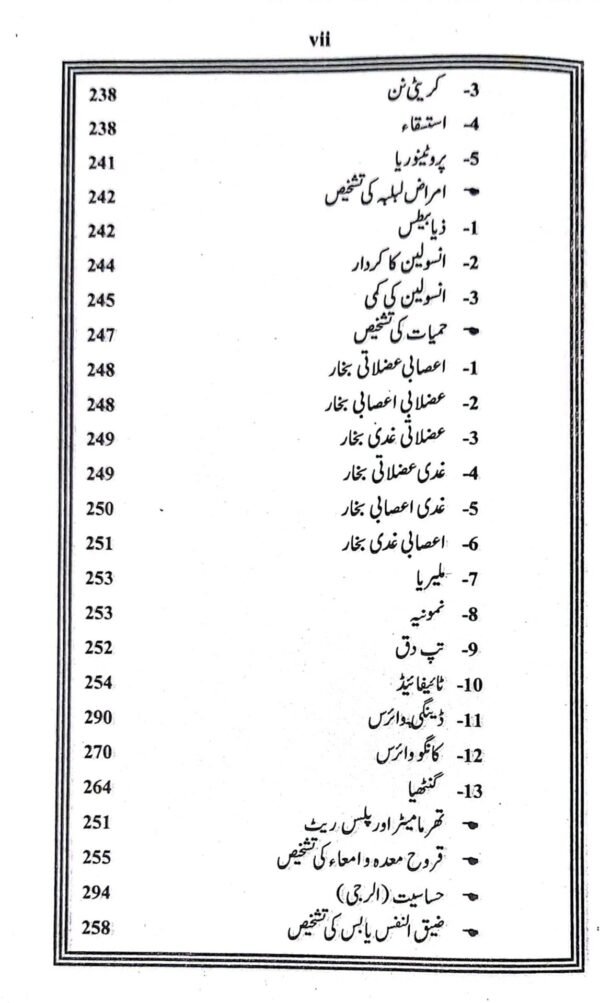 vii
-3 کریٹی نن 238
-4 استسقاء 238
-5 پروٹینوریا 241
☚ امراض لبلبہ کی تشخیص 242
-1 ذیابیطس 242
-2 انسولین کا کردار 244
-3 انسولین کی کمی 245
☚ حمیات کی تشخیص 247
-1 اعصابی عضلاتی بخار 248
-2 عضلاتی اعصابی بخار 248
-3 عضلاتی غدی بخار 249
-4 غدی عضلاتی بخار 249
-5 غدی اعصابی بخار 250
-6 اعصابی غدی بخار 251
-7 ملیریا 253
-8 نمونیہ 253
-9 تپ دق 252
-10 ٹائیفائیڈ 254
-11 ڈینگی وائرس 290
-12 کانگو وائرس 270
-13 گنٹھیا 264
☚ تھرمامیٹر اور پلس ریٹ 251
☚ قروح معدہ و امعاء کی تشخیص 255
☚ حساسیت (الرجی) 294
☚ ضیق النفس یابس کی تشخیص 258